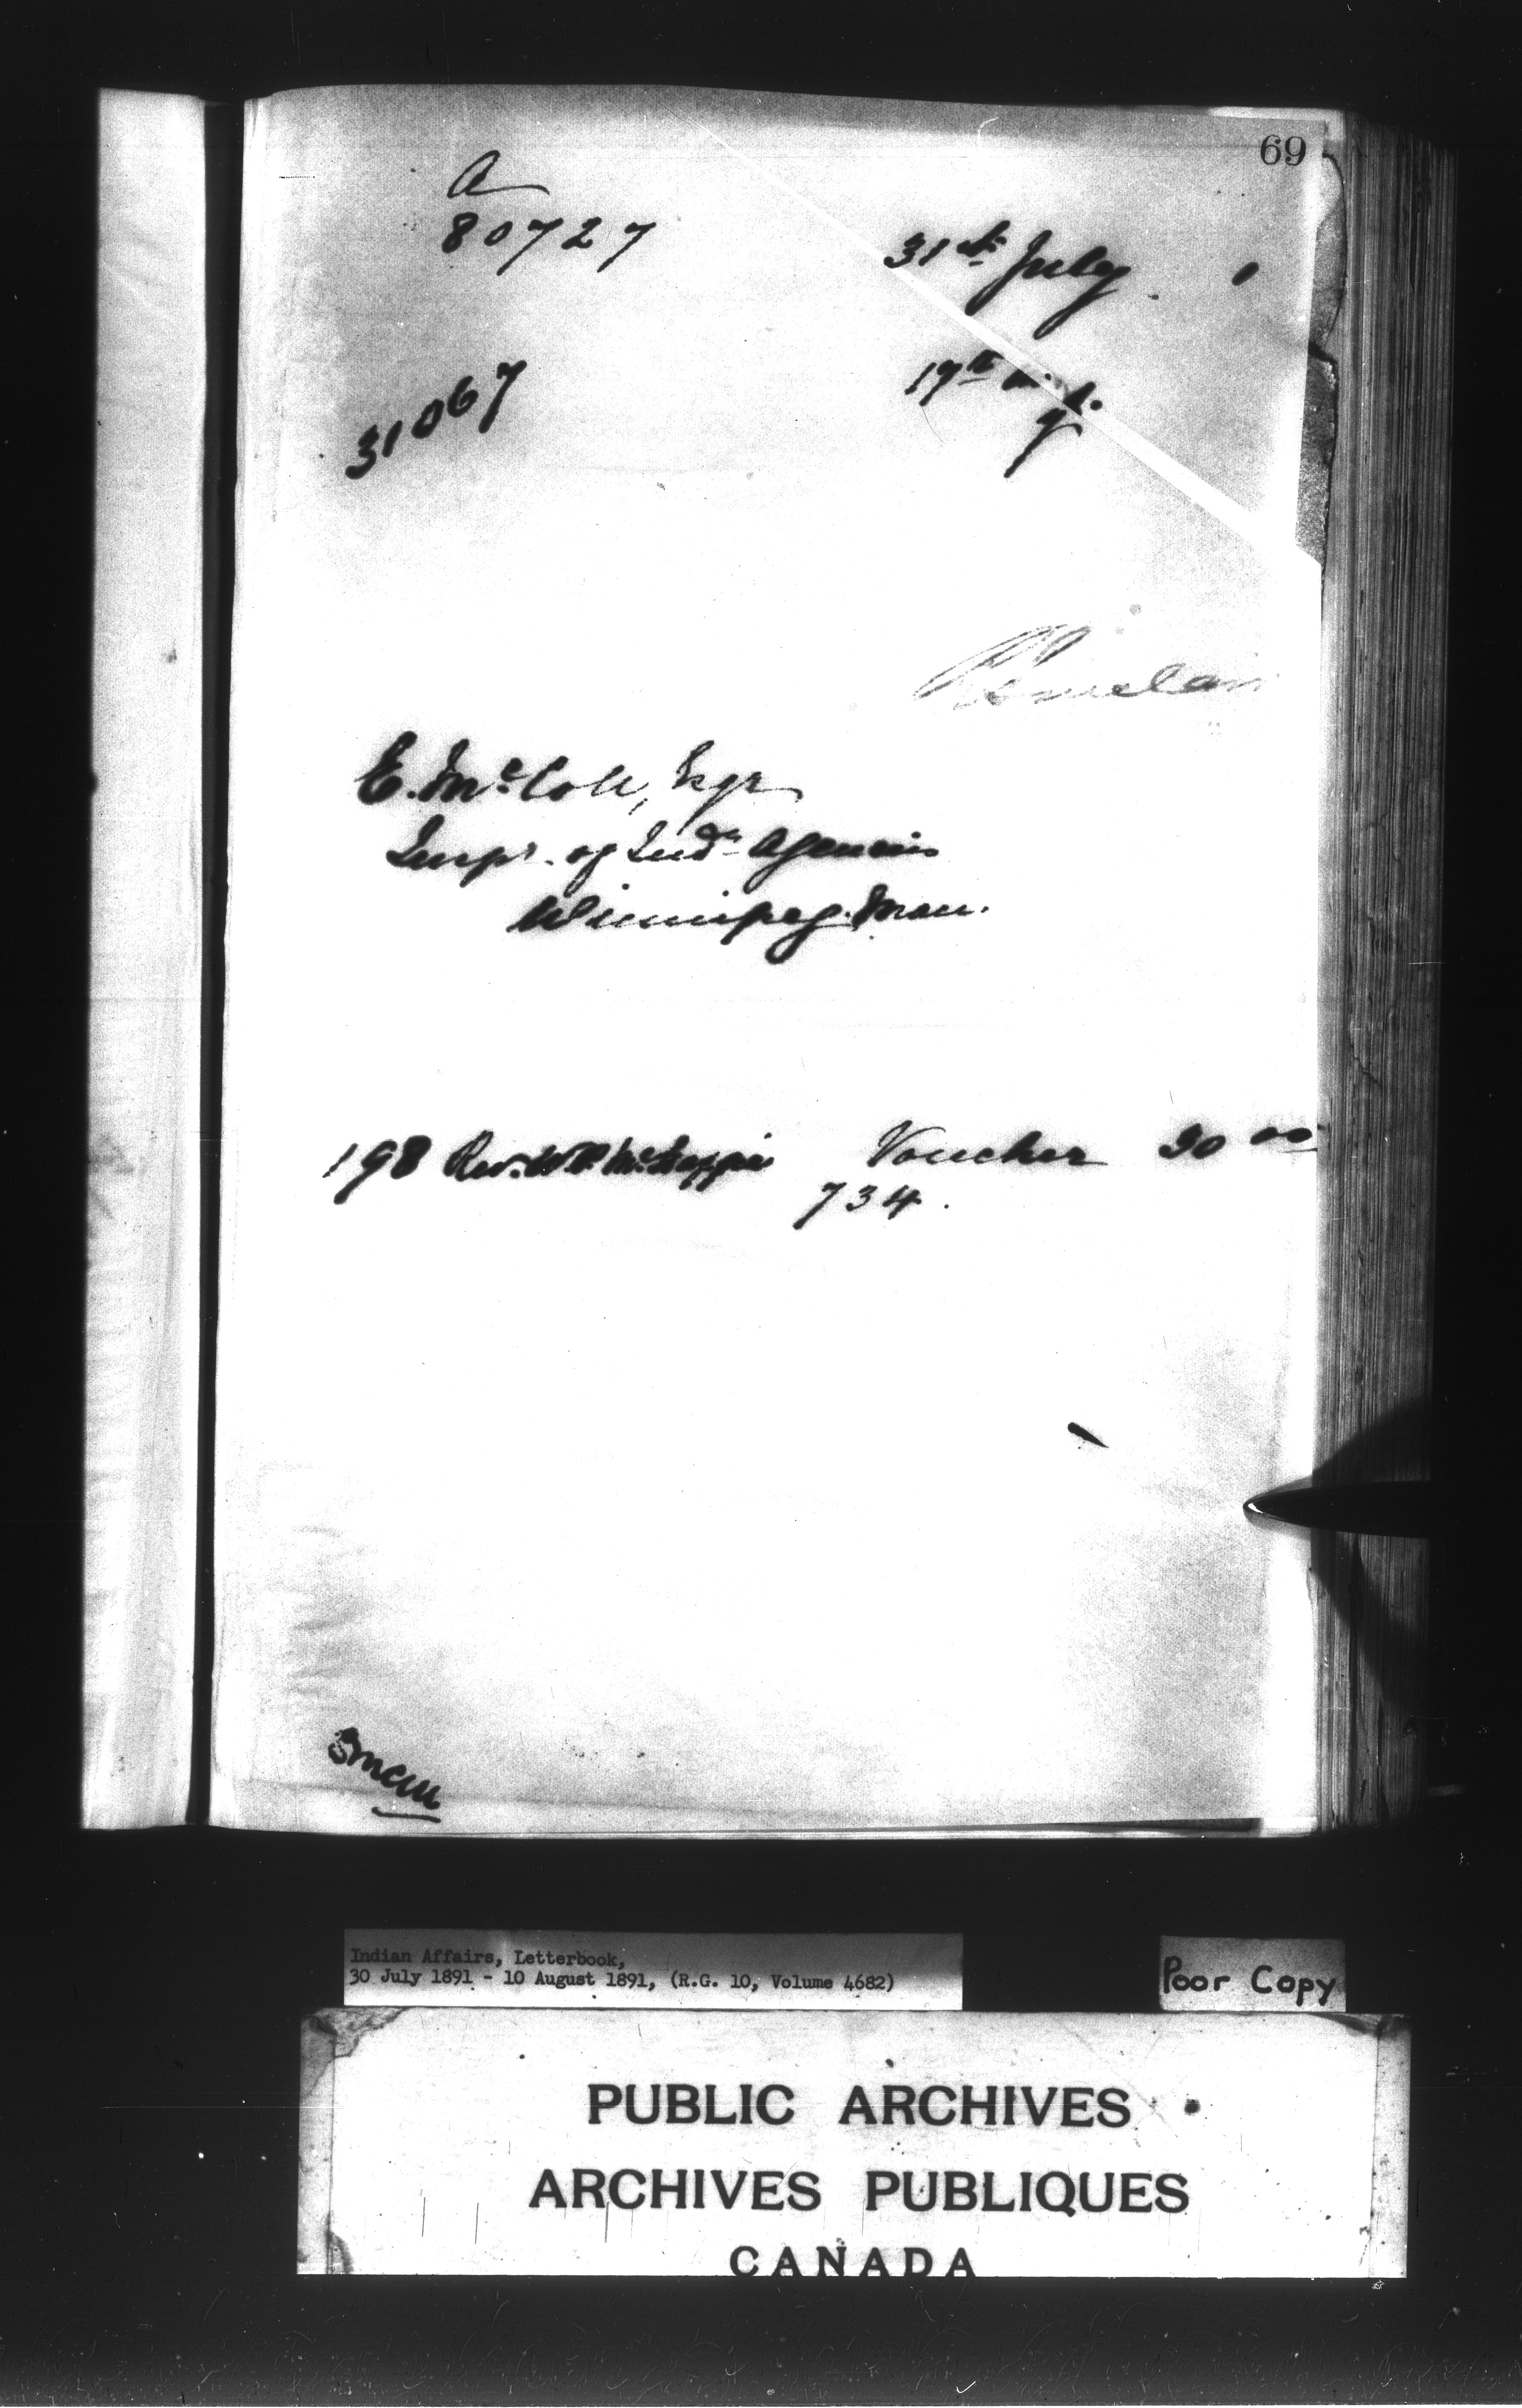 69
A
80727
31st July 1
31067
19th
E. McColl, Esqr
Inspr. of Indn Agencies
Winnipeg. Man.
198 Rev. Voucher 30 00
734.
Indian Affairs, Letterbook,
30 July 1891 - 10 August 1891, (R.G. 10, Volume 4682)
Poor Copy
PUBLIC ARCHIVES
ARCHIVES PUBLIQUES
CANADA